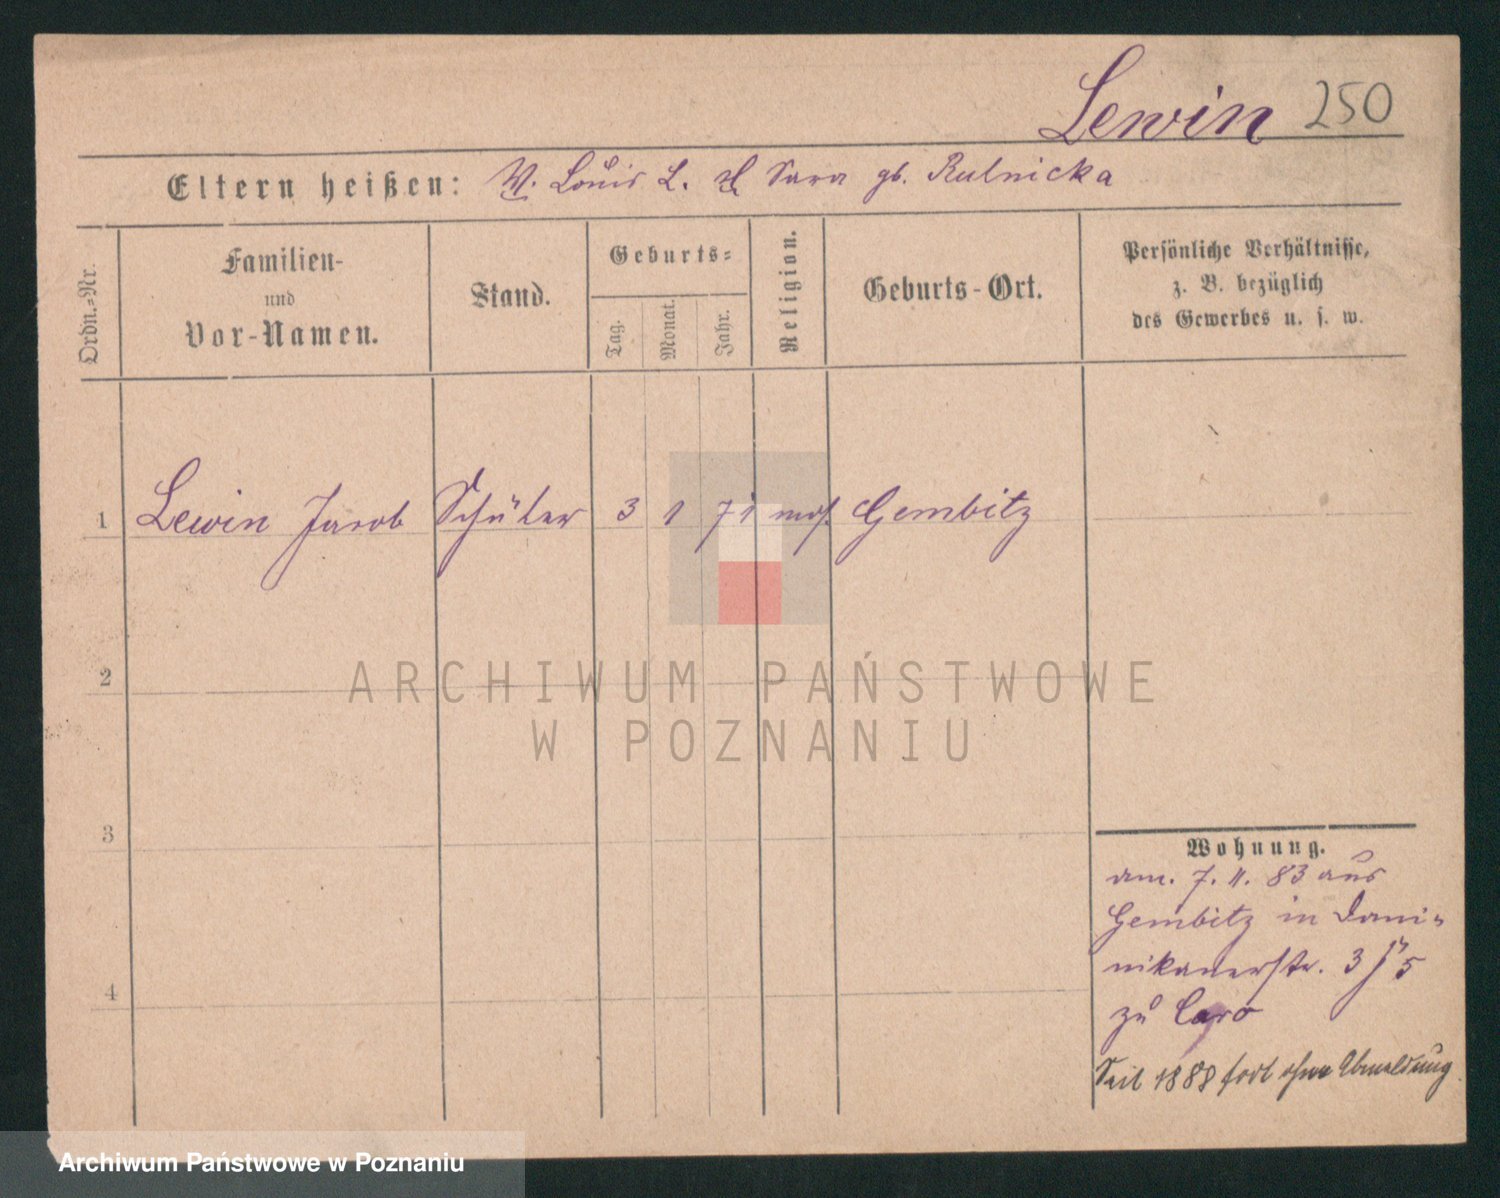 Lewin 250
Eltern heißen: V. Louis L. M Sara gb. Rulnicka
Ordn.=Nr.
Familien-
und
Vor-Namen.
Stand.
Geburts=
Tag.
Monat.
Jahr.
Religion.
Geburts-Ort.
Persönliche Verhältnisse,
z. B. bezüglich
des Gewerbes u. s. w.
1 Lewin Jacob Schüler 3 1 71 mos. Gembitz
2
3
4
Wohnung.
am. 7. 11. 83 aus
Gembitz in Domi=
nikanerstr. 3 5
zu Caro
Seit 1888 fort ohne Abmeldung
ARCHIWUM PAŃSTWOWE
W POZNANIU
Archiwum Państwowe w Poznaniu